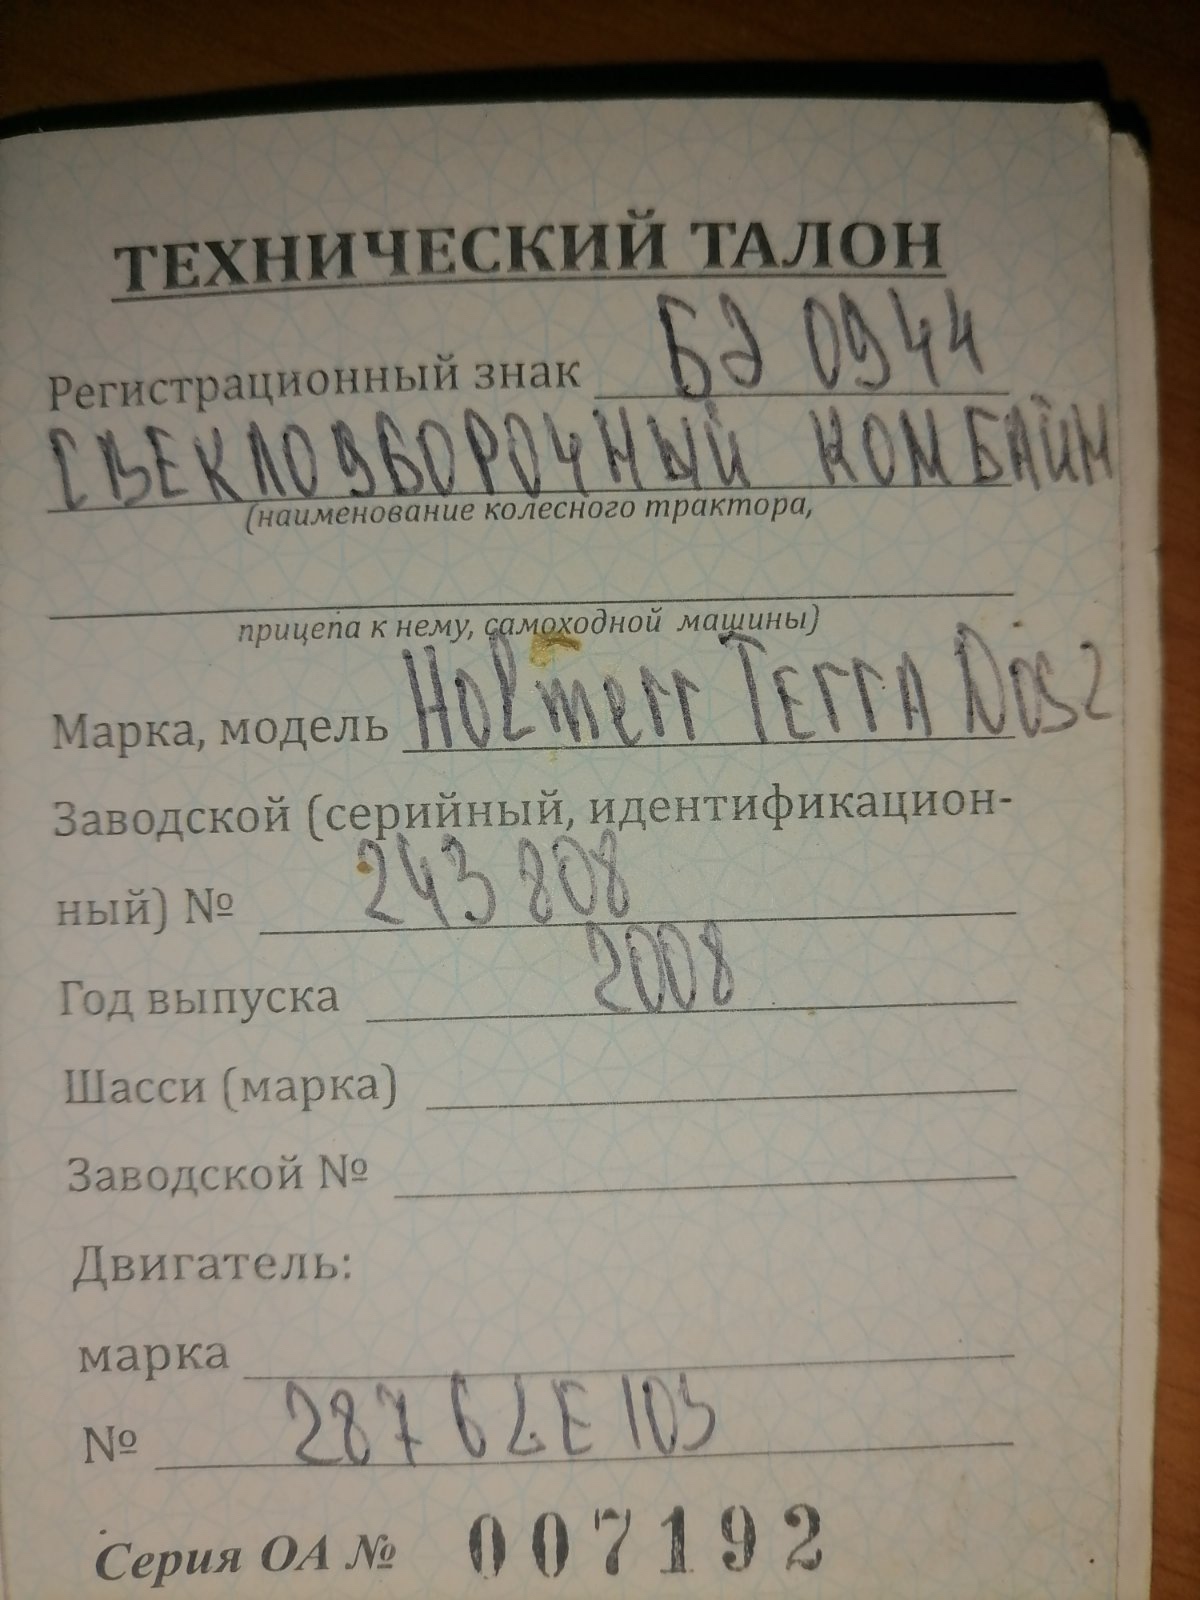 ТЕХНИЧЕСКИЙ ТАЛОН
Регистрационный знак БЭ 0944
СВЕКЛОУБОРОЧНЫЙ КОМБАЙН
(наименование колесного трактора,
прицепа к нему, самоходной машины)
Марка, модель Holmerr TERRA DOS2
Заводской (серийный, идентификацион-
ный) № 243 808
Год выпуска 2008
Шасси (марка)
Заводской №
Двигатель:
марка
№ 287 6 LE 103
Серия ОА № 007192